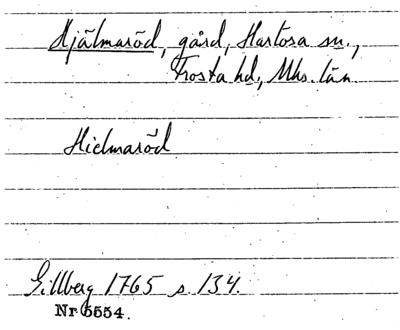 Hjälmaröd, gård, Harlösa sn.,
Frosta hd, Mhs. län.
Hielmaröd
Gillberg 1765 s. 134.
Nr 5554.